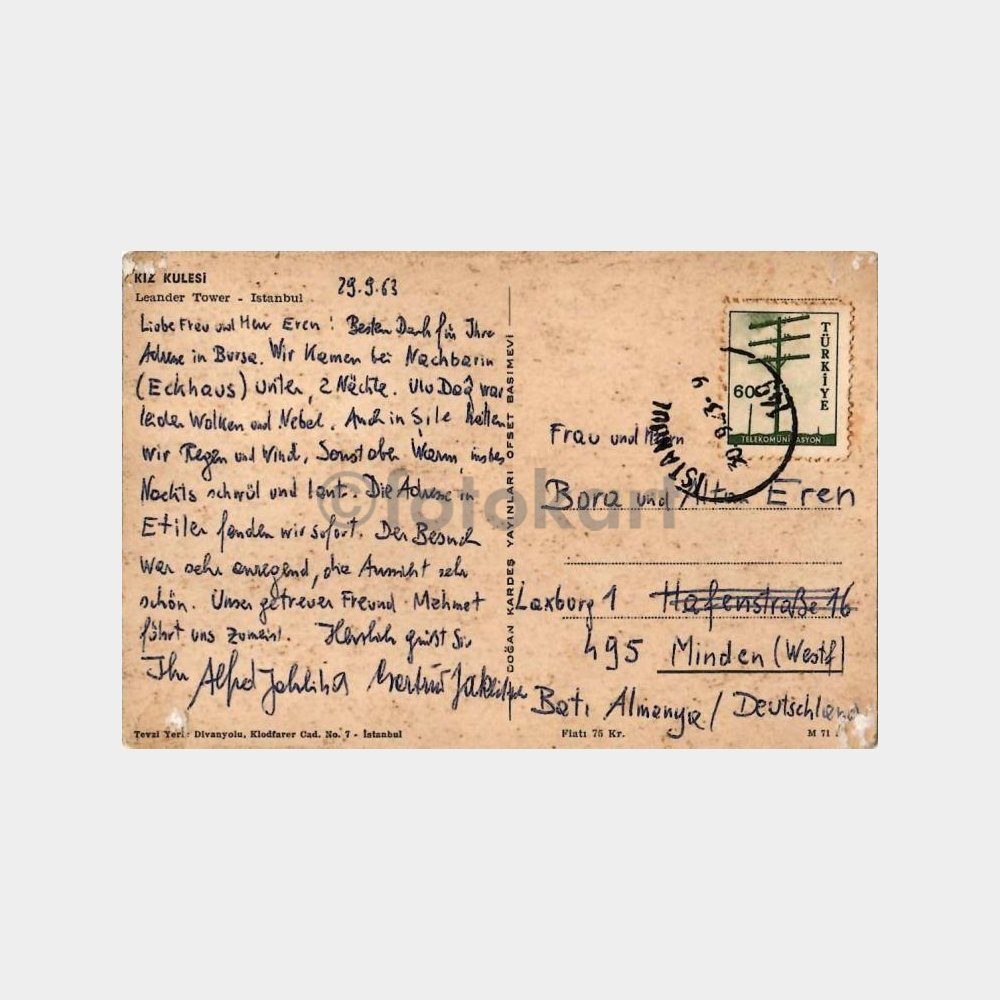 KIZ KULESİ
Leander Tower - Istanbul
29.9.63
Liebe Frau und Herr Eren! Besten Dank für Ihre
Adresse in Bursa. Wir kamen bei Nachbarin
(Eckhaus) unter, 2 Nächte. Ulu Dağ war
leider Wolken und Nebel. Auch in Sile hatten
wir Regen und Wind, Sonst aber Warm, insbes
Nachts schwül und laut. Die Adresse in
Etiler fanden wir sofort. Der Besuch
war sehr anregend, die Aussicht sehr
schön. Unser getreuer Freund Mehmet
fährt uns zumeist. Herzlich grüßt Sie
Ihr Alfred
Tevzi Yeri: Divanyolu, Klodfarer Cad. No. 7 - İstanbul
DOĞAN KARDEŞ YAYINLARI OFSET BASIMEVİ
TÜRKİYE
60
TELEKOMÜNİKASYON
İSTANBUL
30.9.63-9
Frau und Herrn
Bora und Eren
Laxburg 1 Hafenstraße 16
495 Minden (Westf)
Batı Almanya / Deutschland
Fiatı 75 Kr.
M 71
©fotokart